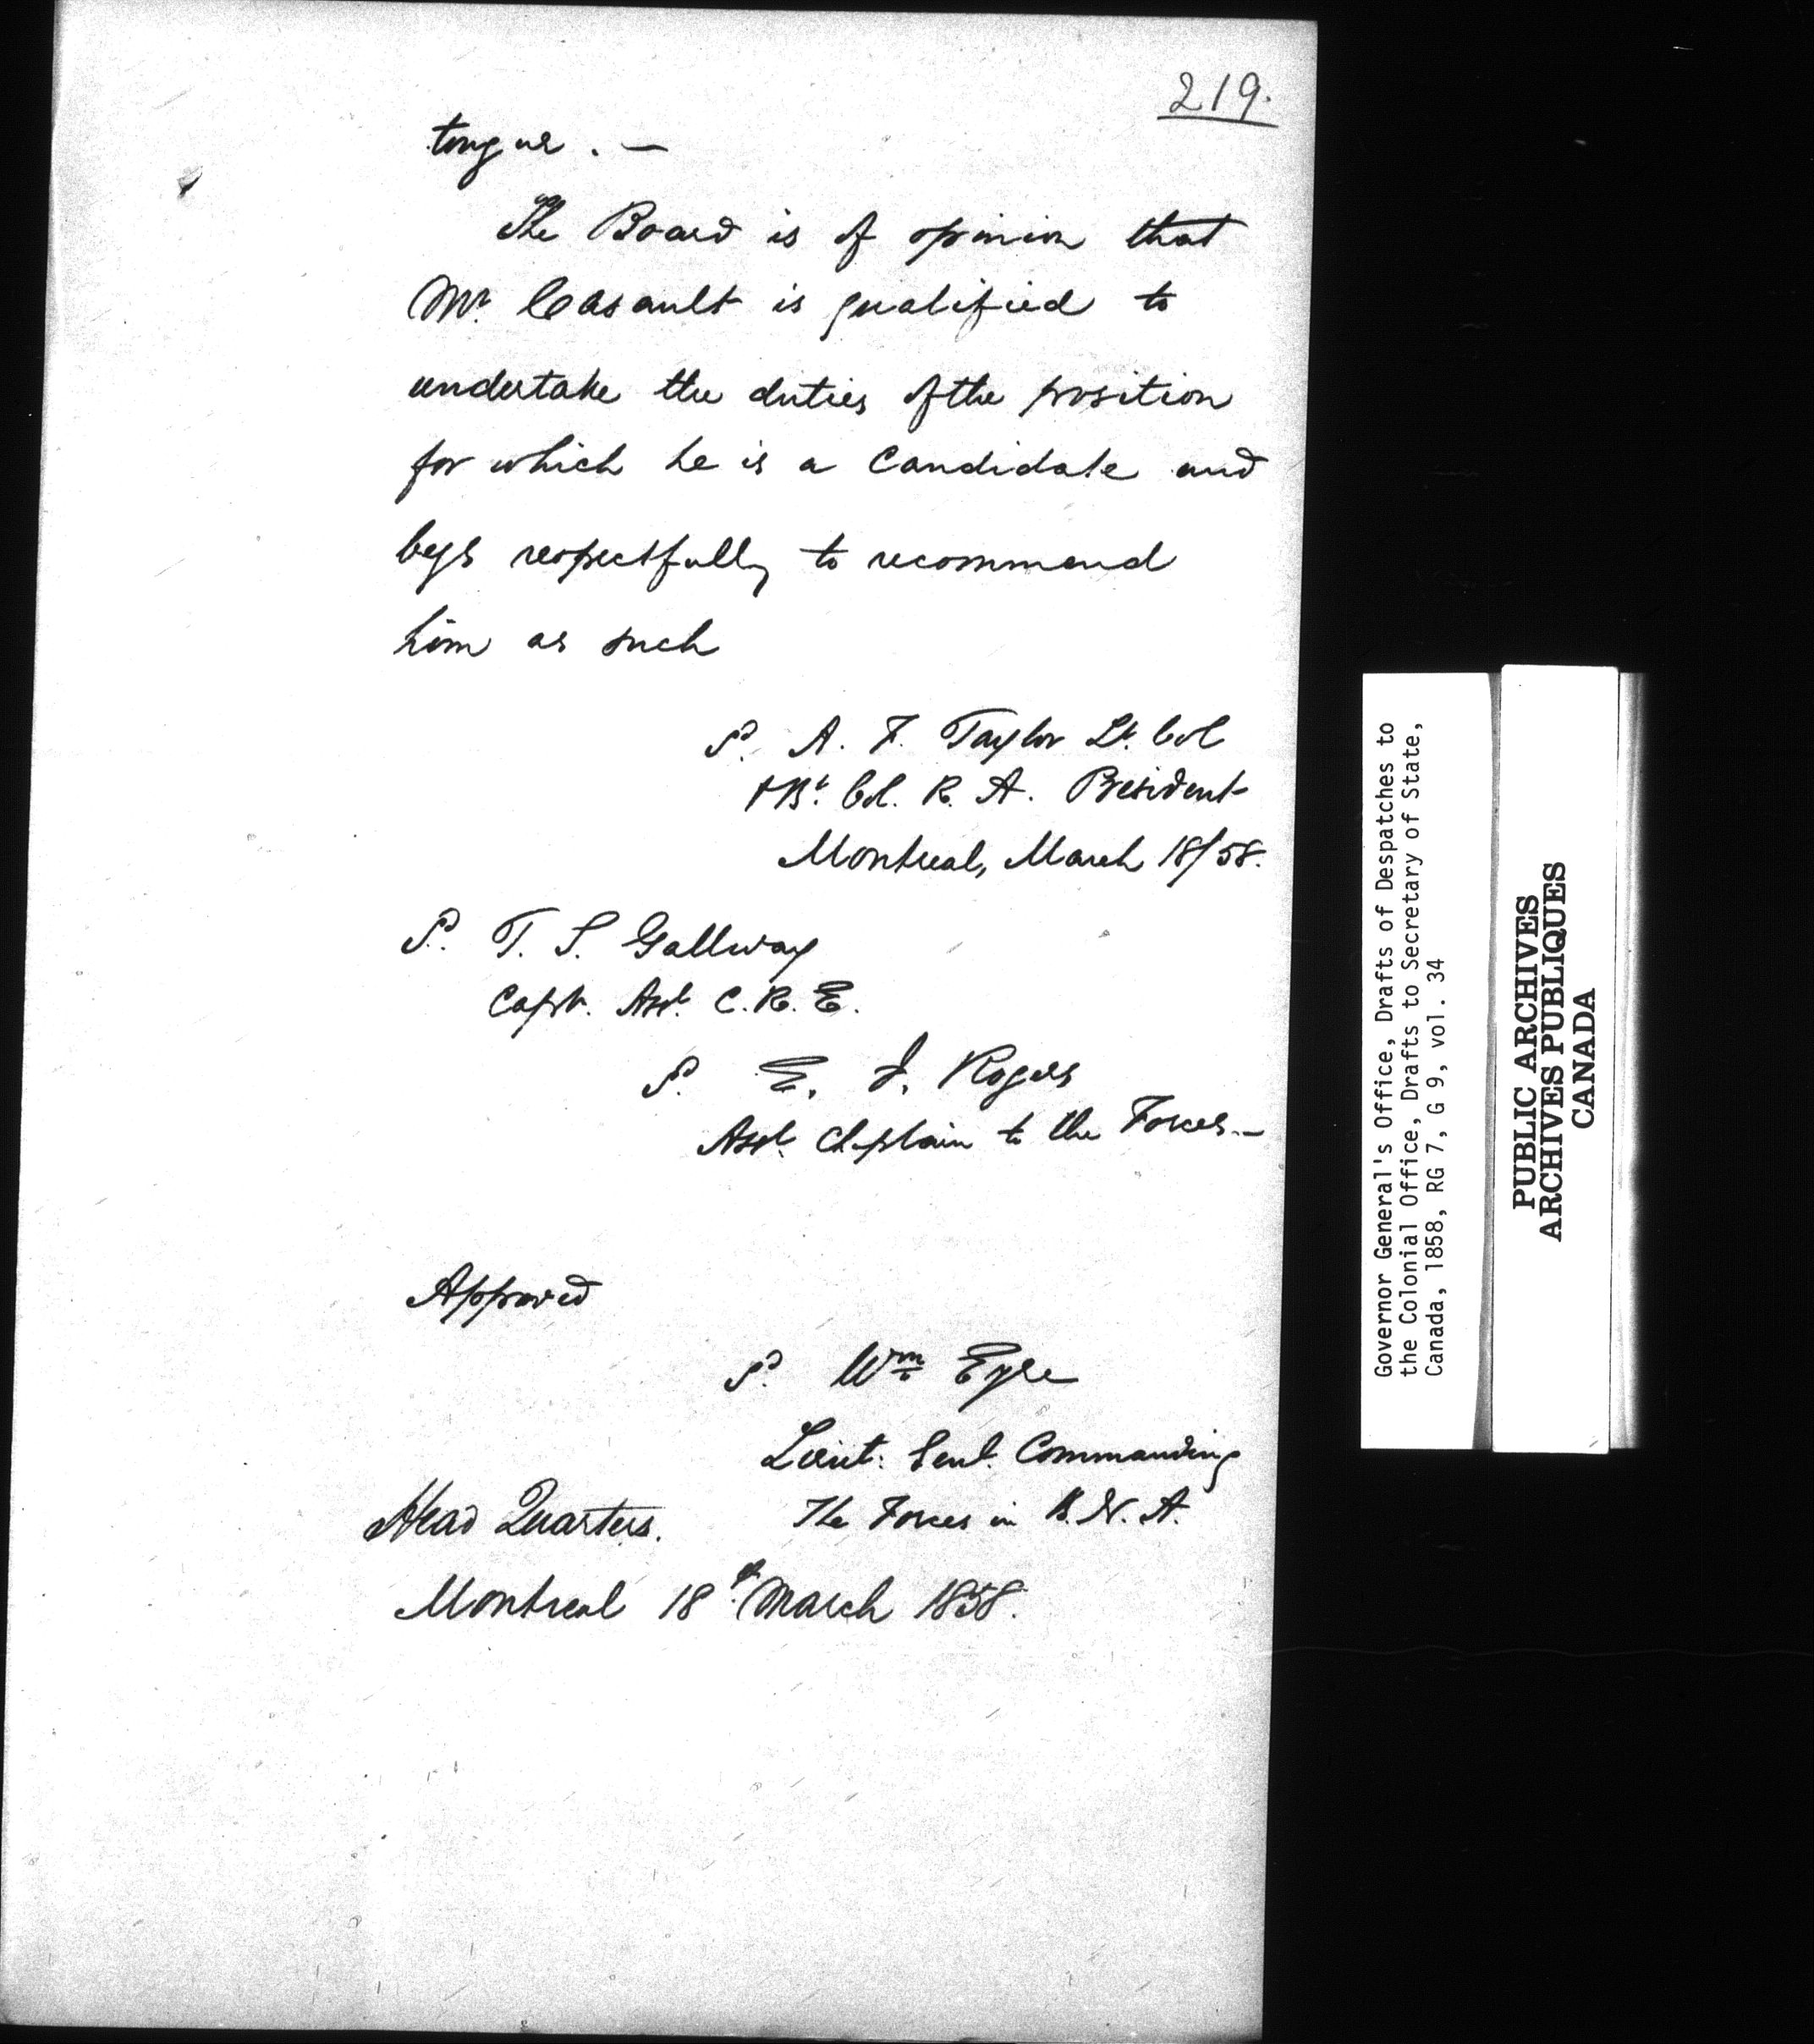 219.
tongue. —
The Board is of opinion that
Mr. Casault is qualified to
undertake the duties of the position
for which he is a Candidate and
begs respectfully to recommend
him as such
S. A. F. Taylor Lt. Col
+ Bt. Col. R. A. President
Montreal, March 18/58.
S. T. L. Gallway
Capt. Asst. C. R. E.
S. E. J. Rogers
Asst. Chaplain to the Forces. —
Approved
S. Wm Eyre
Lieut: Genl. Commanding
The Forces in B. N. A.
Head Quarters.
Montreal 18th March 1858.
Governor General's Office, Drafts of Despatches to
the Colonial Office, Drafts to Secretary of State,
Canada, 1858, RG 7, G 9, vol. 34
PUBLIC ARCHIVES
ARCHIVES PUBLIQUES
CANADA